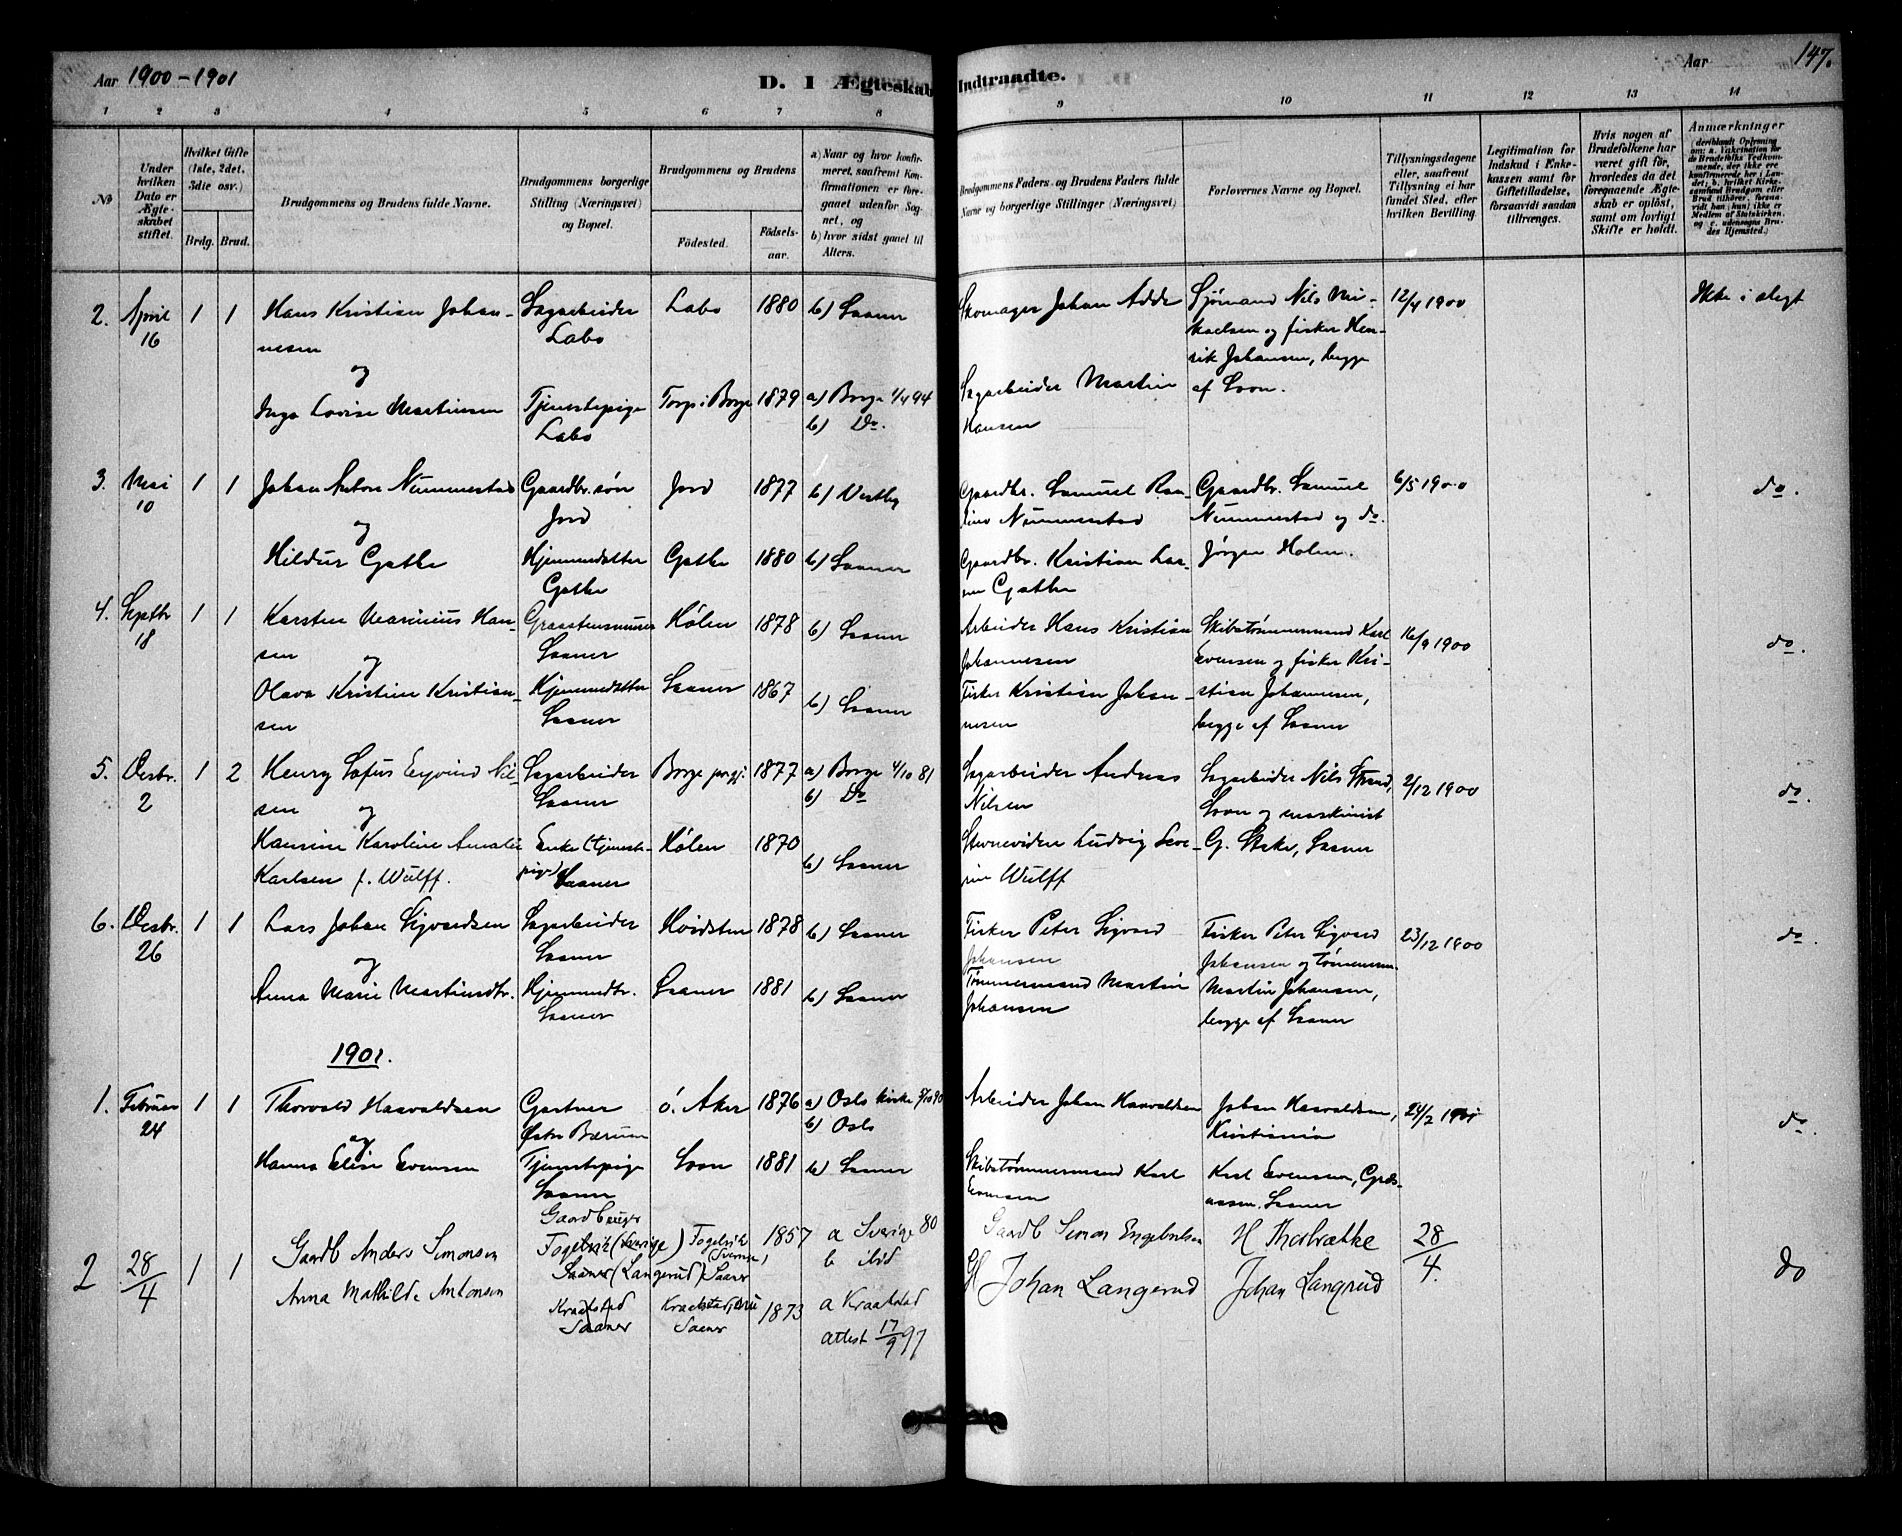 Aar 1900-1901
D. I Ægteskab Indtraadte.
Aar 147.
1 2 3 4 5 6 7 8 9 10 11 12 13 14
No
Under hvilken Dato er Ægteskabet stiftet.
Hvilket Gifte (1ste, 2det, 3die osv.)
Brdg. Brud.
Brudgommens og Brudens fulde Navne.
Brudgommens borgerlige Stilling (Næringsvei) og Bopæl.
Brudgommens og Brudens
Fødested. Fødselsaar.
a) Naar og hvor konfirmeret, saafremt Konfirmationen er foregaaet udenfor Sognet, og
b) hvor sidst gaaet til Alters.
Brudgommens Faders og Brudens Faders fulde Navne og borgerlige Stillinger (Næringsvei)
Forlovernes Navne og Bopæl.
Tillysningsdagene eller, saafremt Tillysning ei har fundet Sted, efter hvilken Bevilling.
Legitimation for Indskud i Enkekassen samt for Giftetilladelse, forsaavidt saadan tiltrænges.
Hvis nogen af Brudefolkene har været gift før, hvorledes da det foregaaende Ægteskab er opløst, samt om lovligt Skifte er holdt.
Anmærkninger
2. April 16 1 1 Hans Kristian Johannesen Sagarbeider Labo Labo 1880 b) Saaner Skomager Johan Adde Sjømand Nils Mikaelsen og fisker Henrik Johansen, begge af Soon. 12/4 1900 Ikke i slegt
og
Inga Lovise Martinsen Tjenestepige Labo Torp i Borge 1879 a) Borge 1/4 94 b) Do. Sagarbeider Martin Hansen
3. Mai 10 1 1 Johan Anton Nummestad Gaardbr. søn Jord Jord 1877 b) Vestby Gaardbr. Samuel Nummestad Gaardbr. Samuel Nummestad og do. Jørgen Holen. 6/5 1900 do.
og
Hildur Gathe Hjemmedatter Gathe Gathe 1880 b) Saaner Gaardbr. Kristian Larsen Gathe
4. Septbr 18 1 1 Karsten Marinius Hansen Saaner Hølen 1878 b) Saaner Arbeider Hans Kristian Johannesen Skibstømmermand Karl Evensen og fisker Kristian Johannesen, begge af Saaner 16/9 1900 do.
og
Olava Kristine Kristiansen Hjemmedatter Saaner Saaner 1867 b) Saaner Fisker Kristian Johannesen
5. Desbr. 2 1 2 Henry Sofus Eyvind Nilsen Sagarbeider Saaner Borge 1877 a) Borge 4/10 81 b) Do Sagarbeider Andreas Nilsen Sagarbeider Nils Strand, Soon og maskinist G. Stake, Saaner 2/12 1900 do.
og
Hansine Karoline Amalie Karlsen f. Wulff. Enke (tjenestepige) Saaner Hølen 1870 b) Saaner Ludvig Severin Wulff
6. Desbr. 26 1 1 Lars Johan Sigvardsen Sagarbeider Saaner 1878 b) Saaner Fisker Peter Sigvard Johansen Fisker Peter Sigvard Johansen og Tømmerm. Martin Johansen, begge af Saaner 23/12 1900 do.
og
Anna Marie Martinsdtr. Hjemmedtr. Saaner Saaner 1881 b) Saaner Tømmermand Martin Johansen
1901.
1. Februar 24 1 1 Thorvald Haavaldsen Gartner Østre Bærum ö. Aker 1876 a) Oslo kirke b) Oslo Arbeider Johan Haavaldsen Johan Haavaldsen, Kristiania 24/2 1901 do.
og
Hanna Elise Evensen Tjenestepige Saaner Soon 1881 b) Saaner Skibstømmermand Karl Evensen Karl Evensen, Saaner
2 28/4 1 1 Gaardb Anders Simonsen Gaardbruger Fogelvik (Sverige) Saaner (Langerud) Fogelvik Sverige, Saaner 1857 a Sverige 80 b ibid Gaardb Simon Engebretsen H Thorbrække 28/4. do
Anna Mathilde Antonsen Kraakstad Saaner Saaner 1873 a Kraakstad attest 17/9 97 Johan Langerud Johan Langrud